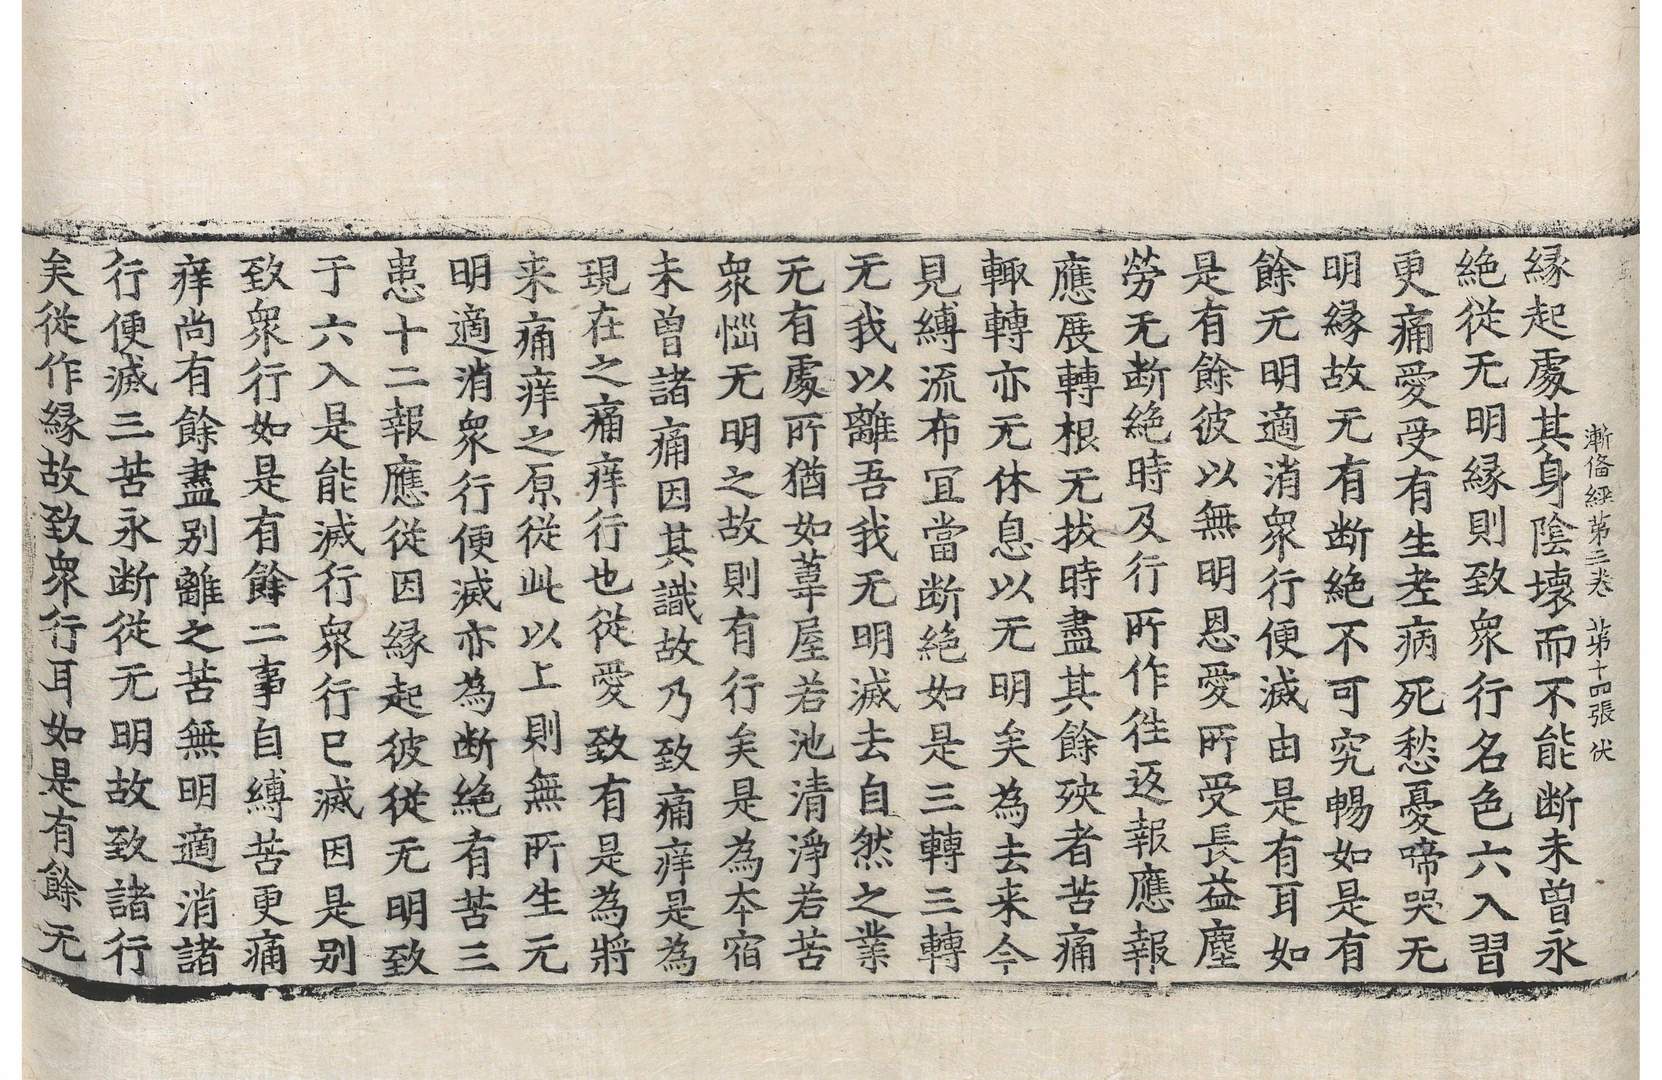 漸備經第三卷 第十四張 伏
縁起處其身陰壞而不能断未曽永
絶從无明縁則致衆行名色六入習
更痛愛受有生老病死愁憂啼哭无
明縁故无有断絶不可究暢如是有
餘无明適消衆行便滅由是有耳如
是有餘彼以無明恩愛所受長益塵
勞无断絶時及行所作徃返報應報
應展轉根无拔時盡其餘殃者苦痛
輙轉亦无休息以无明矣為去来今
見縛流布冝當断絶如是三轉三轉
无我以離吾我无明滅去自然之業
无有處所猶如葦屋若池清淨若苦
衆惱无明之故則有行矣是為夲宿
未曽諸痛因其識故乃致痛痒是為
現在之痛痒行也從愛致有是為將
来痛痒之原從此以上則無所生无
明適消衆行便滅亦為断絶有苦三
患十二報應從因縁起彼從无明致
于六入是能滅行衆行已滅因是别
致衆行如是有餘二事自縛苦更痛
痒尚有餘盡别離之苦無明適消諸
行便滅三苦永断從无明故致諸行
矣從作縁故致衆行耳如是有餘无